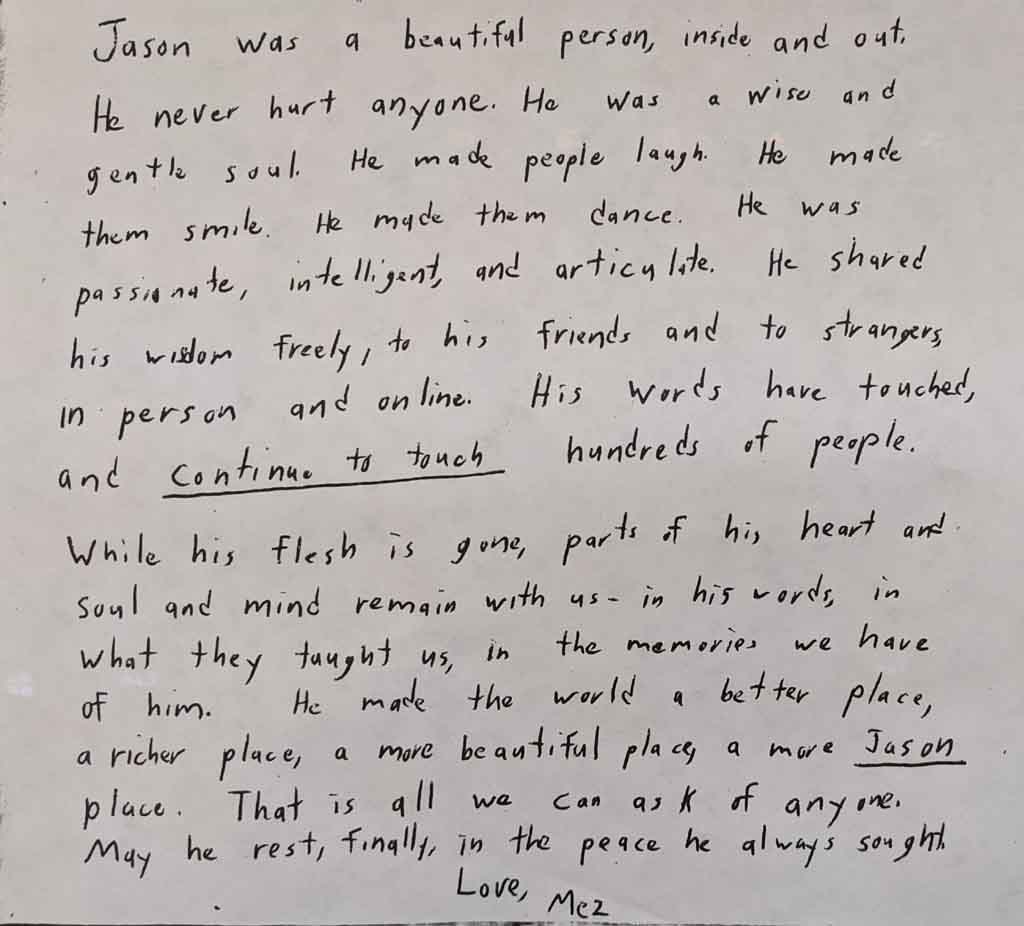 Jason was a beautiful person, inside and out.
He never hurt anyone. He was a wise and
gentle soul. He made people laugh. He made
them smile. He made them dance. He was
passionate, intelligent, and articulate. He shared
his wisdom freely, to his friends and to strangers,
in person and online. His words have touched,
and continue to touch hundreds of people.
While his flesh is gone, parts of his heart and
soul and mind remain with us - in his words, in
what they taught us, in the memories we have
of him. He made the world a better place,
a richer place, a more beautiful place, a more Jason
place. That is all we can ask of anyone.
May he rest, finally, in the peace he always sought.
Love, Mez